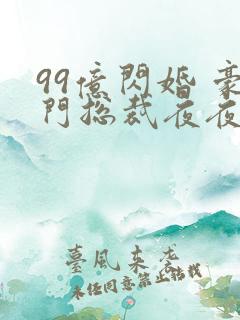 99億閃婚 豪
門总裁夜夜
臺風来袭
未经同意禁止转载